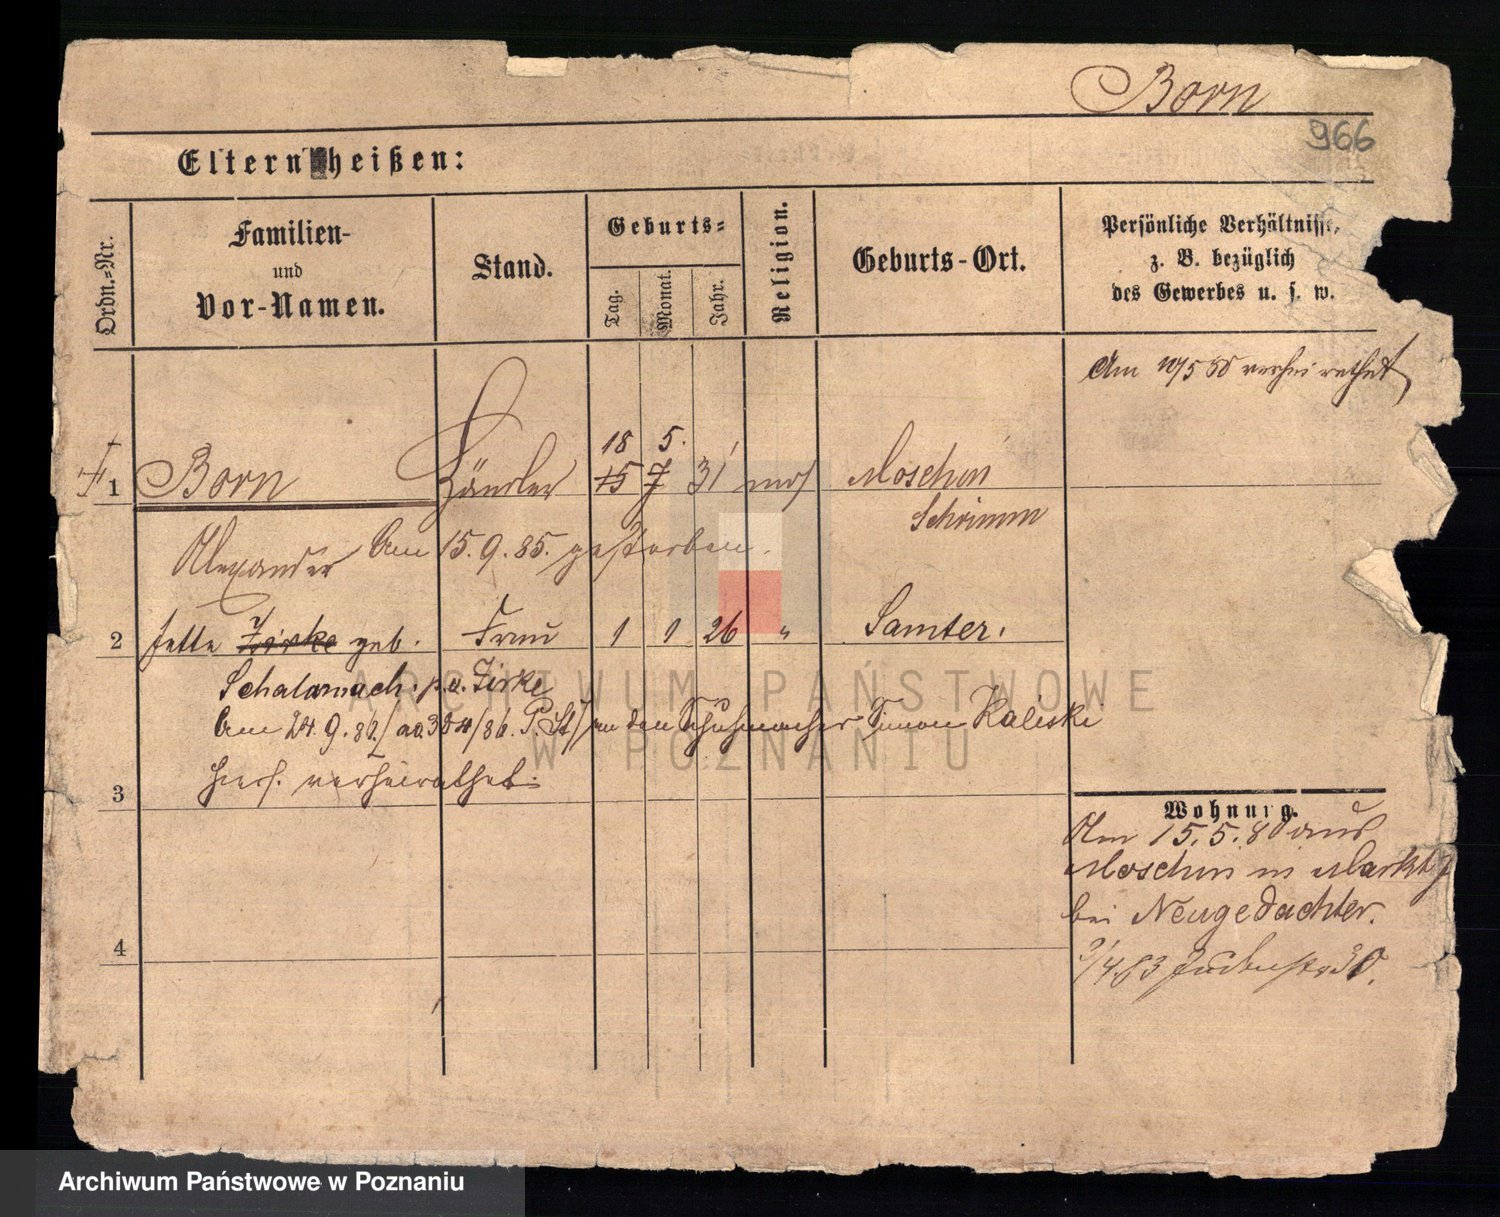 Born
966
Eltern heißen:
Ordn.=Nr.
Familien- und Vor-Namen.
Stand.
Geburts=
Tag.
Monat.
Jahr.
Religion.
Geburts-Ort.
Persönliche Verhältnisse,
z. B. bezüglich
des Gewerbes u. s. w.
Am 10/5 80 verheirathet
18 5.
1 Born Händler 15 7 31 mos Moschin
Schrimm
Alexander Am 15.9.85. gestorben.
2 Jette Zirke geb. Frau 1 1 26 " Samter.
Schalamach. p.v. Zirke
Am 24.9.86. /aa 304/86. P. St/ an den Schuhmacher Simon Kaliski
hiers. verheirathet.
3
Wohnung.
Am 15.5.80 aus
Moschin in Markt 7
bei Neugedachter.
3/4.83 Judenstr 30.
4
ARCHIWUM PAŃSTWOWE
W POZNANIU
Archiwum Państwowe w Poznaniu